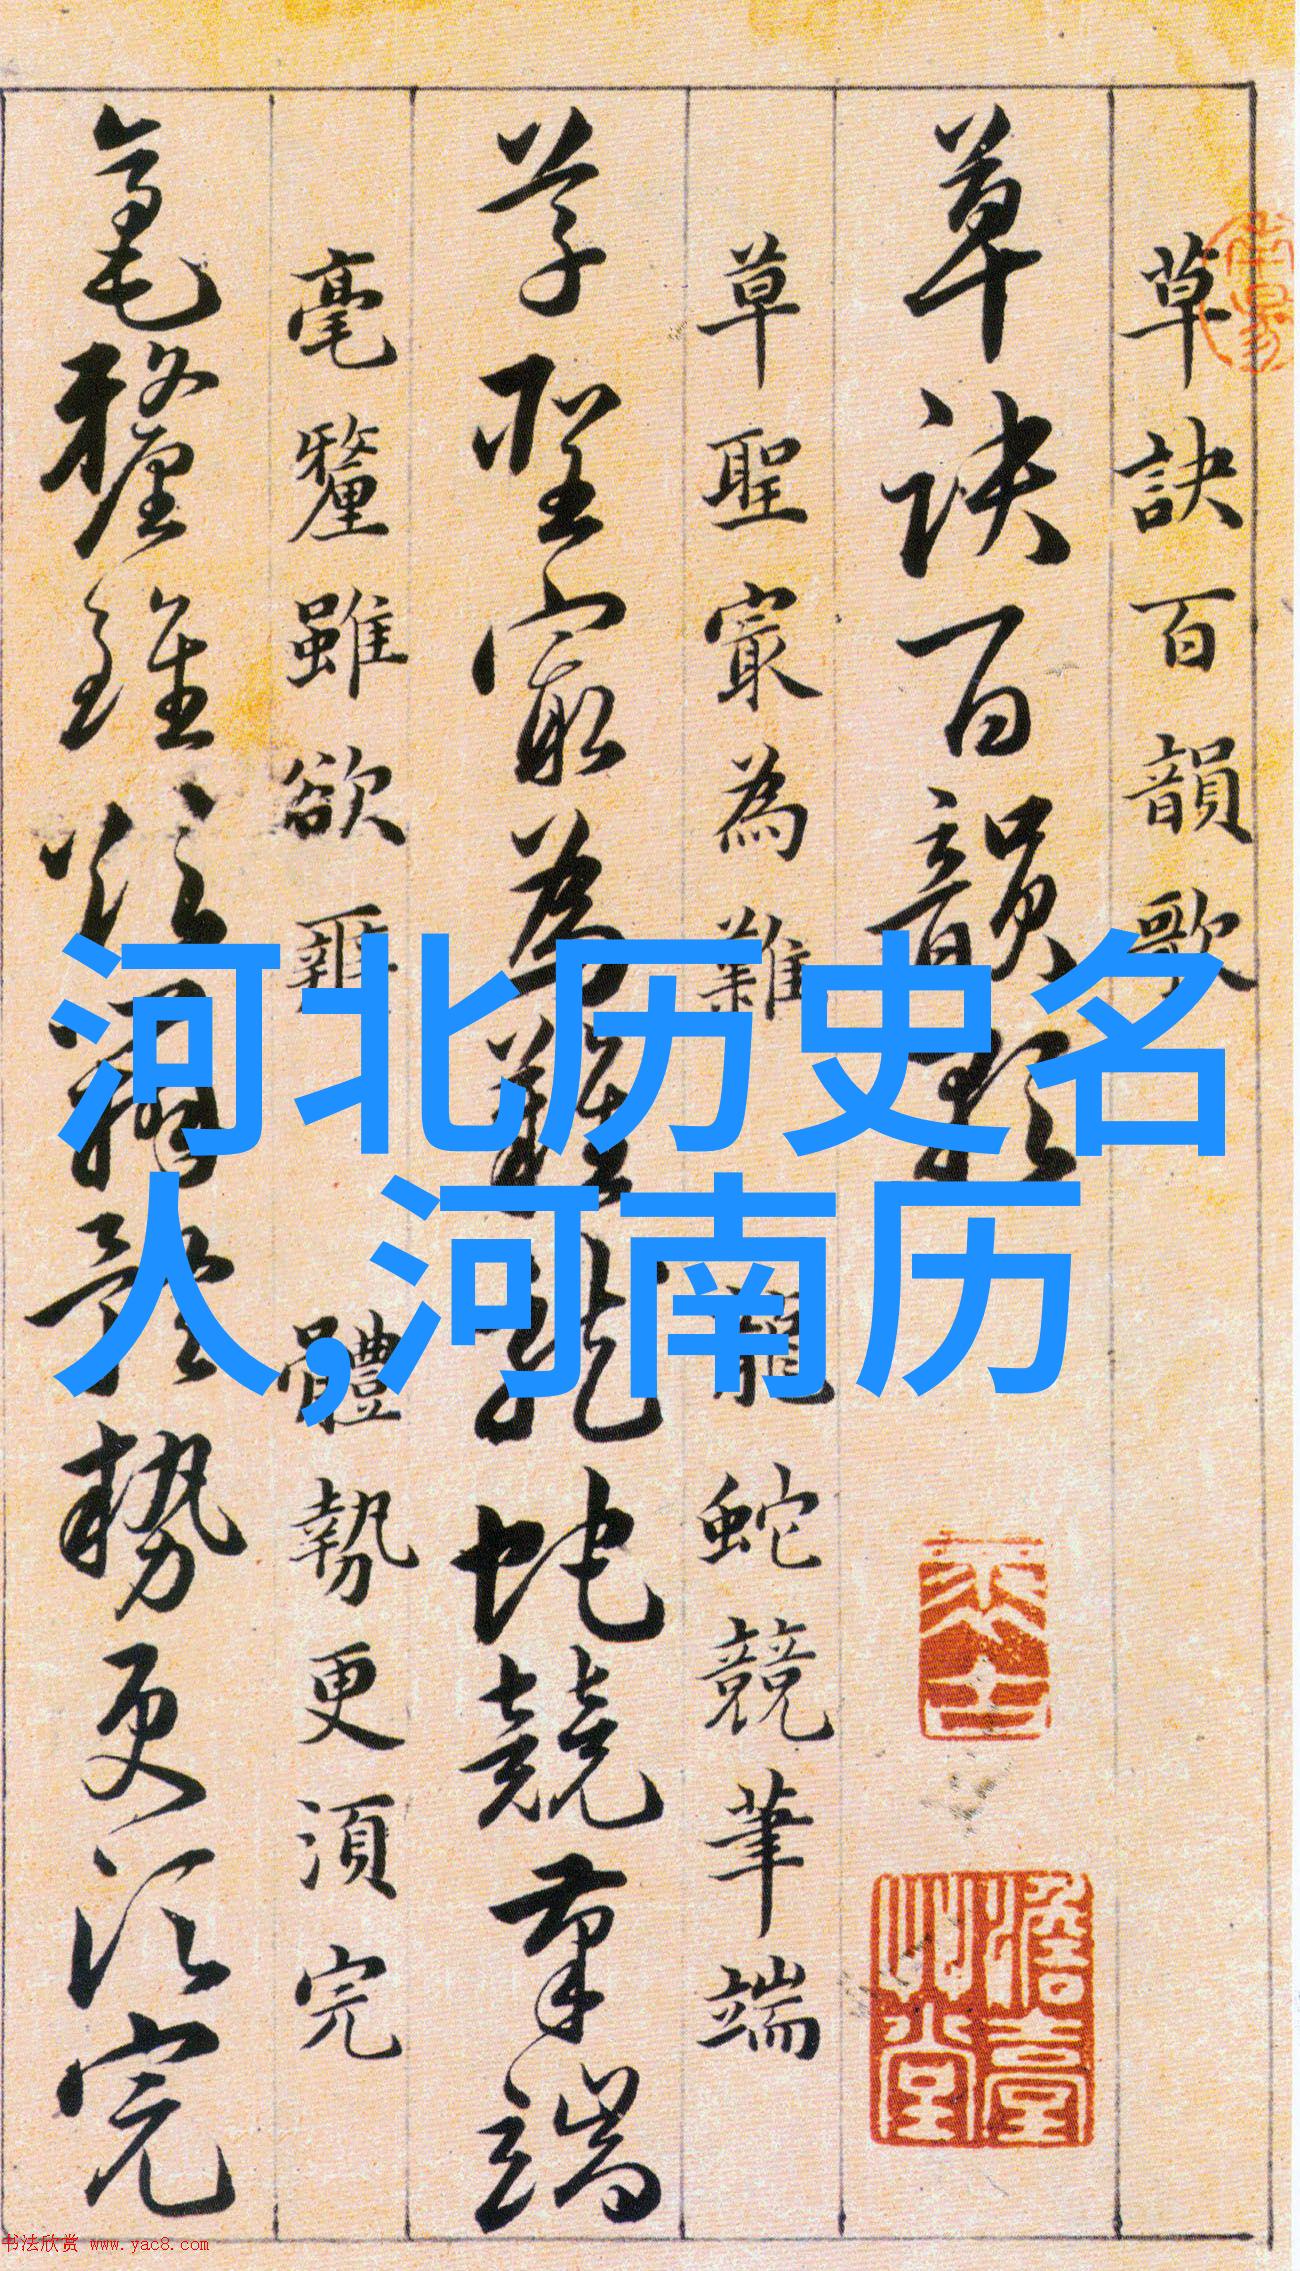 草訣百韻歌
草诀百韻歌
草聖寂為難龍蛇競筆端
草聖寂為難龍蛇競筆端
毫釐雖欲辨體勢更須完
毫釐雖欲辨體勢更須完
河北历史名
人,河南历
书法欣赏 www.yac8.com